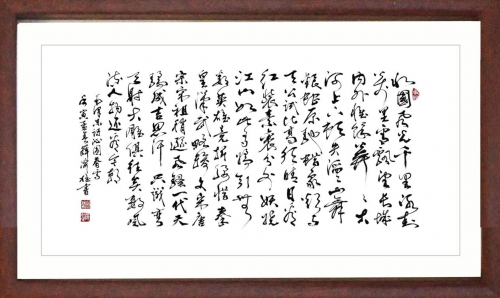 北國风光千里冰封
万里雪飘望长城
内外惟余莽々大
河上下顿失滔々山舞
银蛇原驰蜡象欲与
天公试比高须晴日看
红装素裹分外妖娆
江山如此多娇引无
数英雄竞折腰惜秦
皇汉武略输文采唐
宗宋祖稍逊风骚一代天
骄成吉思汗只识弯
弓射大雕俱往矣数风
流人物还看今朝
毛泽东诗沁园春雪
庚寅 书